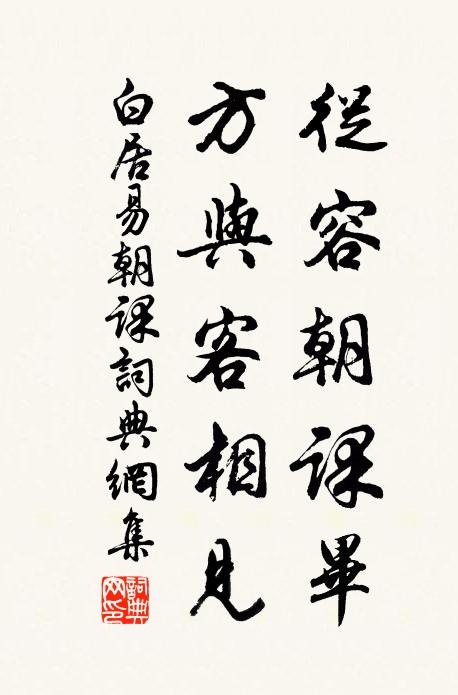 從容朝課畢
方與客相見
白居易朝課詞典網集
詞典網印